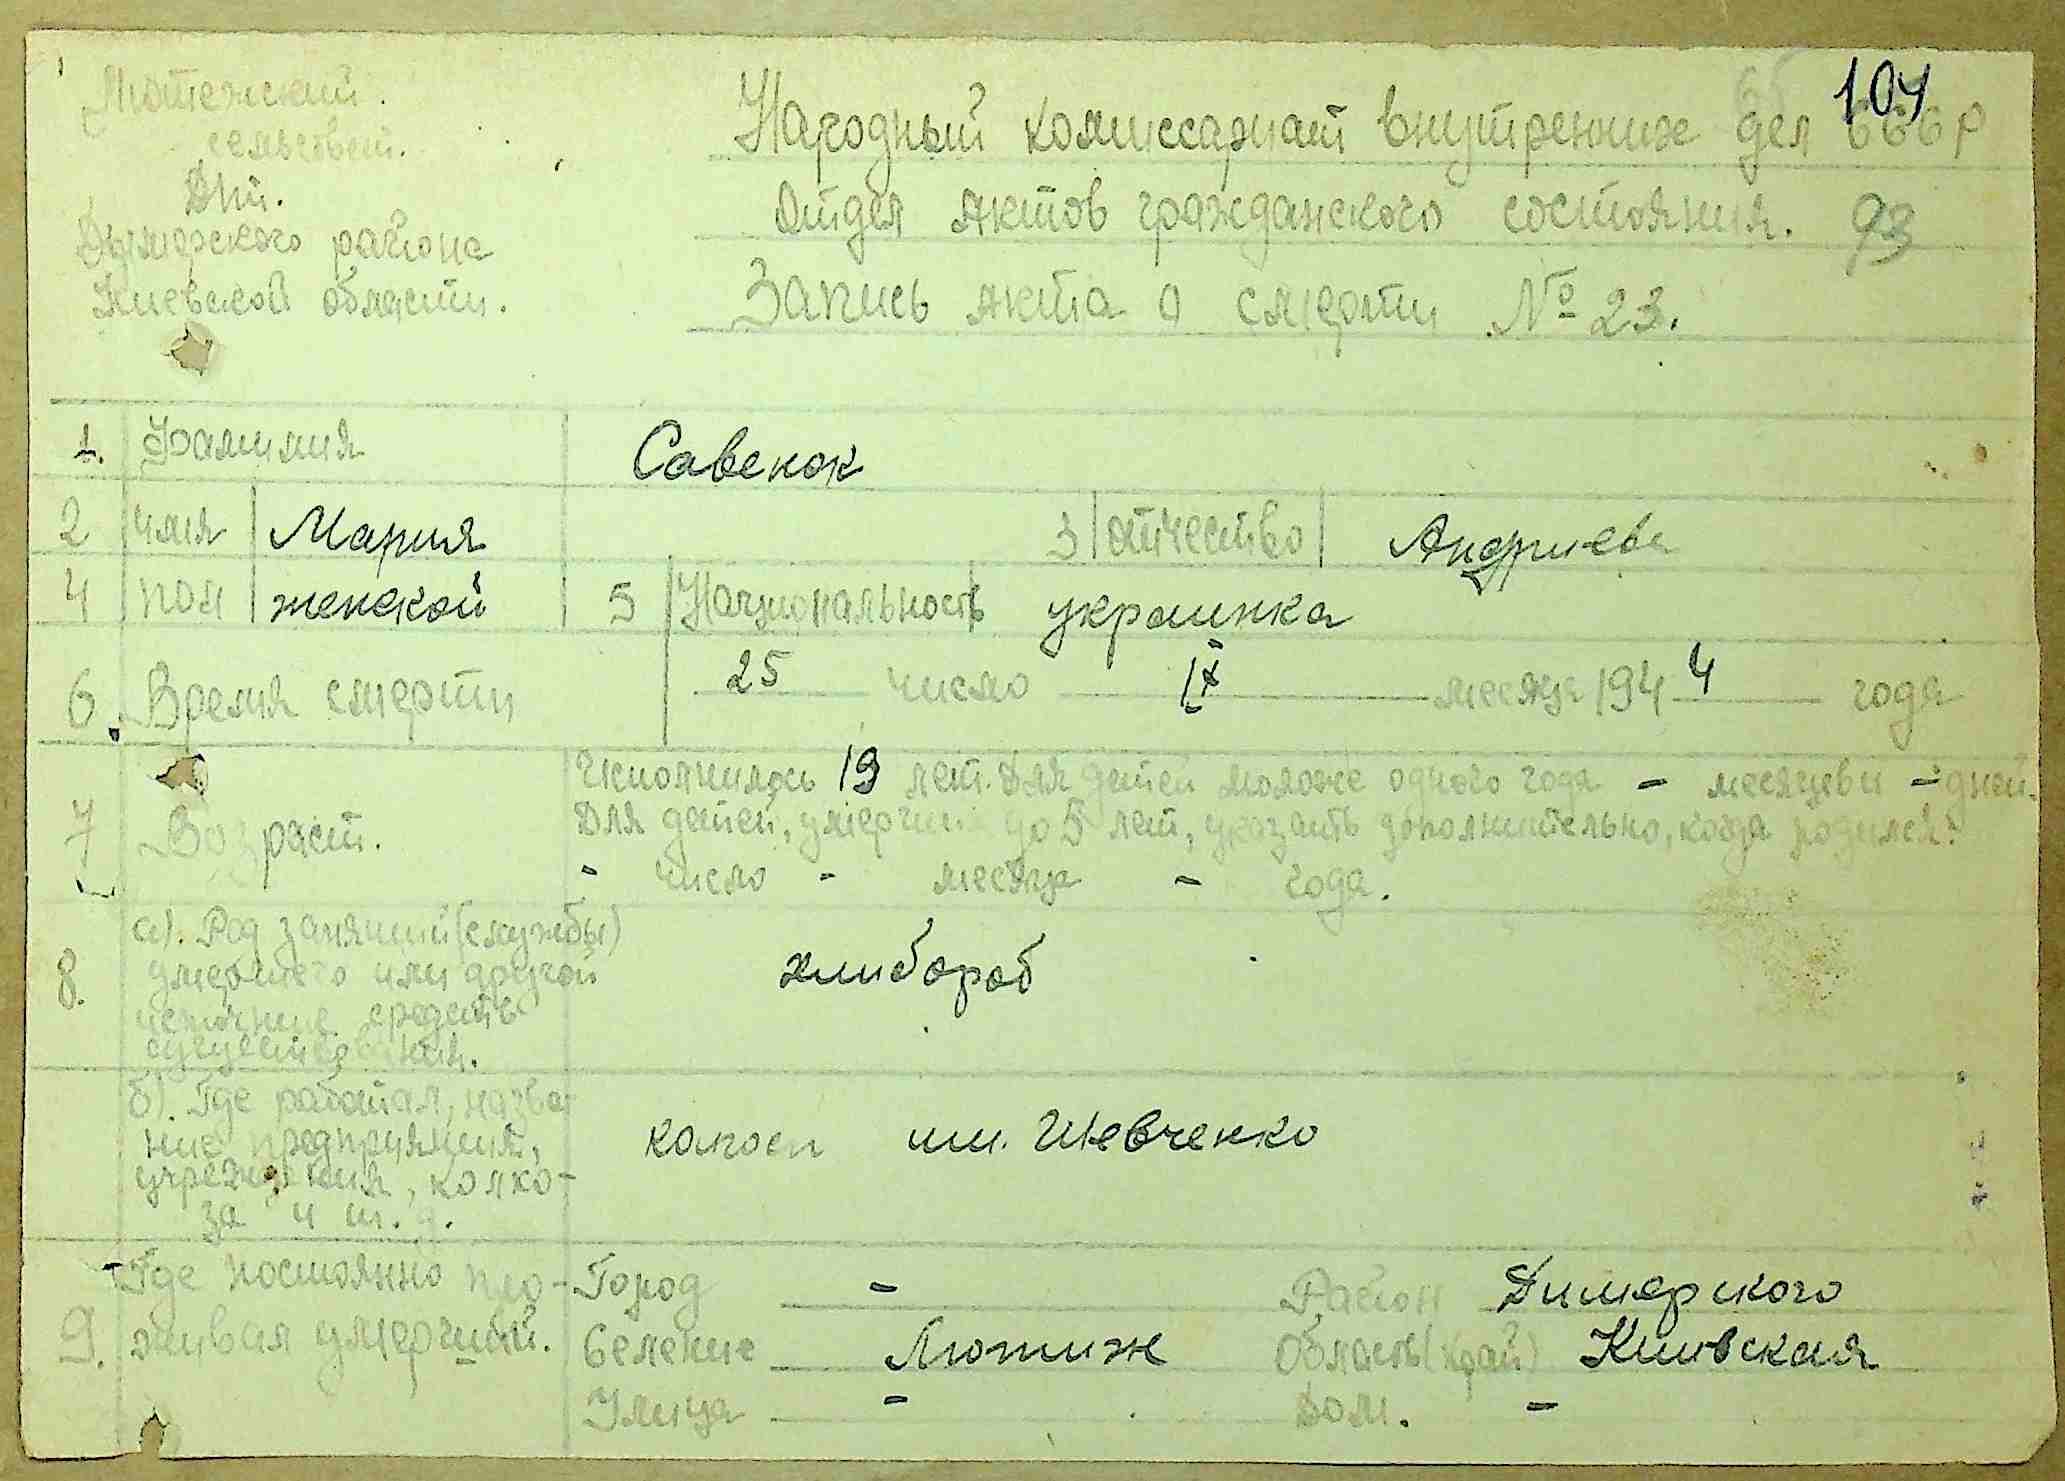 Лютежский
сельсовет.
Дым.
Дымерского района
Киевской области.
104
Народный комиссариат внутренних дел СССР
Отдел актов гражданского состояния. 93
Запись акта о смерти № 23.
1. Фамилия Савенок
2 имя Мария 3 отчество Андриева
4 пол женской 5 Национальность украинка
6. Время смерти 25 число IX месяца 1944 года
7 Возраст. Исполнилось 19 лет. Для детей моложе одного года - месяцев и - дней.
Для детей, умерших до 5 лет, указать дополнительно, когда родился:
- число - месяца - года.
8. а). Род занятий (службы)
умершего или другой
источник средств
существования.
хлибороб
б). Где работал, назва-
ние предприятия,
учреждения, колхо-
за и т. д.
колгосп им. Шевченко
9. Где постоянно про-
живал умерший.
Город - Район Димерского
Селение Лютиж Область (край) Киивская
Улица - Дом. -